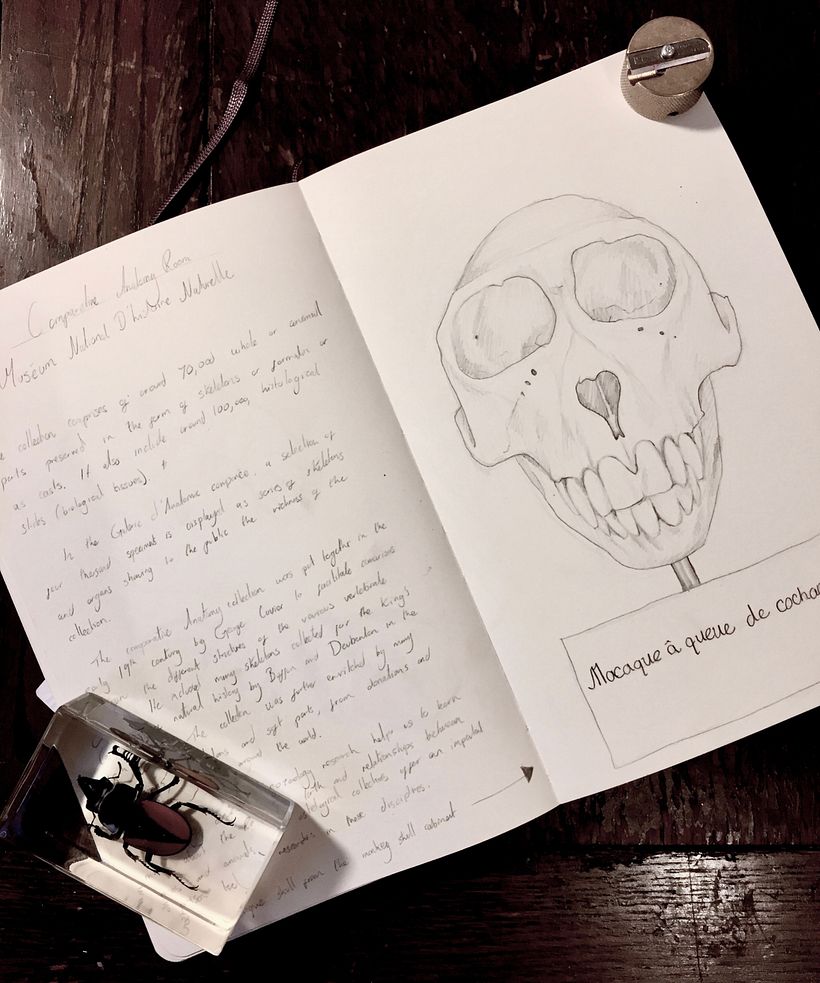 Comparative Anatomy Room
Muséum National D'histoire Naturelle
collection comprises of around 70,000 whole or animal
parts preserved in the form of skeletons or formalin or
as casts. It also include around 100,000 histological
slides (biological tissues).
In the Galerie d'Anatomie comparée, a selection of
four thousand specimens is displayed as series of skeletons
and organs showing to the public the richness of the
collection.
The comparative Anatomy collection was put together in the
early 19th century by George Cuvier to facilitate
the different structures of the various vertebrate
He included many skeletons collected for the King's
natural history by Buffon and Daubenton in the
The collection was further enriched by many
and soft parts, from donations and
around the world.
research helps us to learn
and relationships between
collections offer an important
in these disciplines.
skull from the monkey skull cabinet
Macaque à queue de cochon